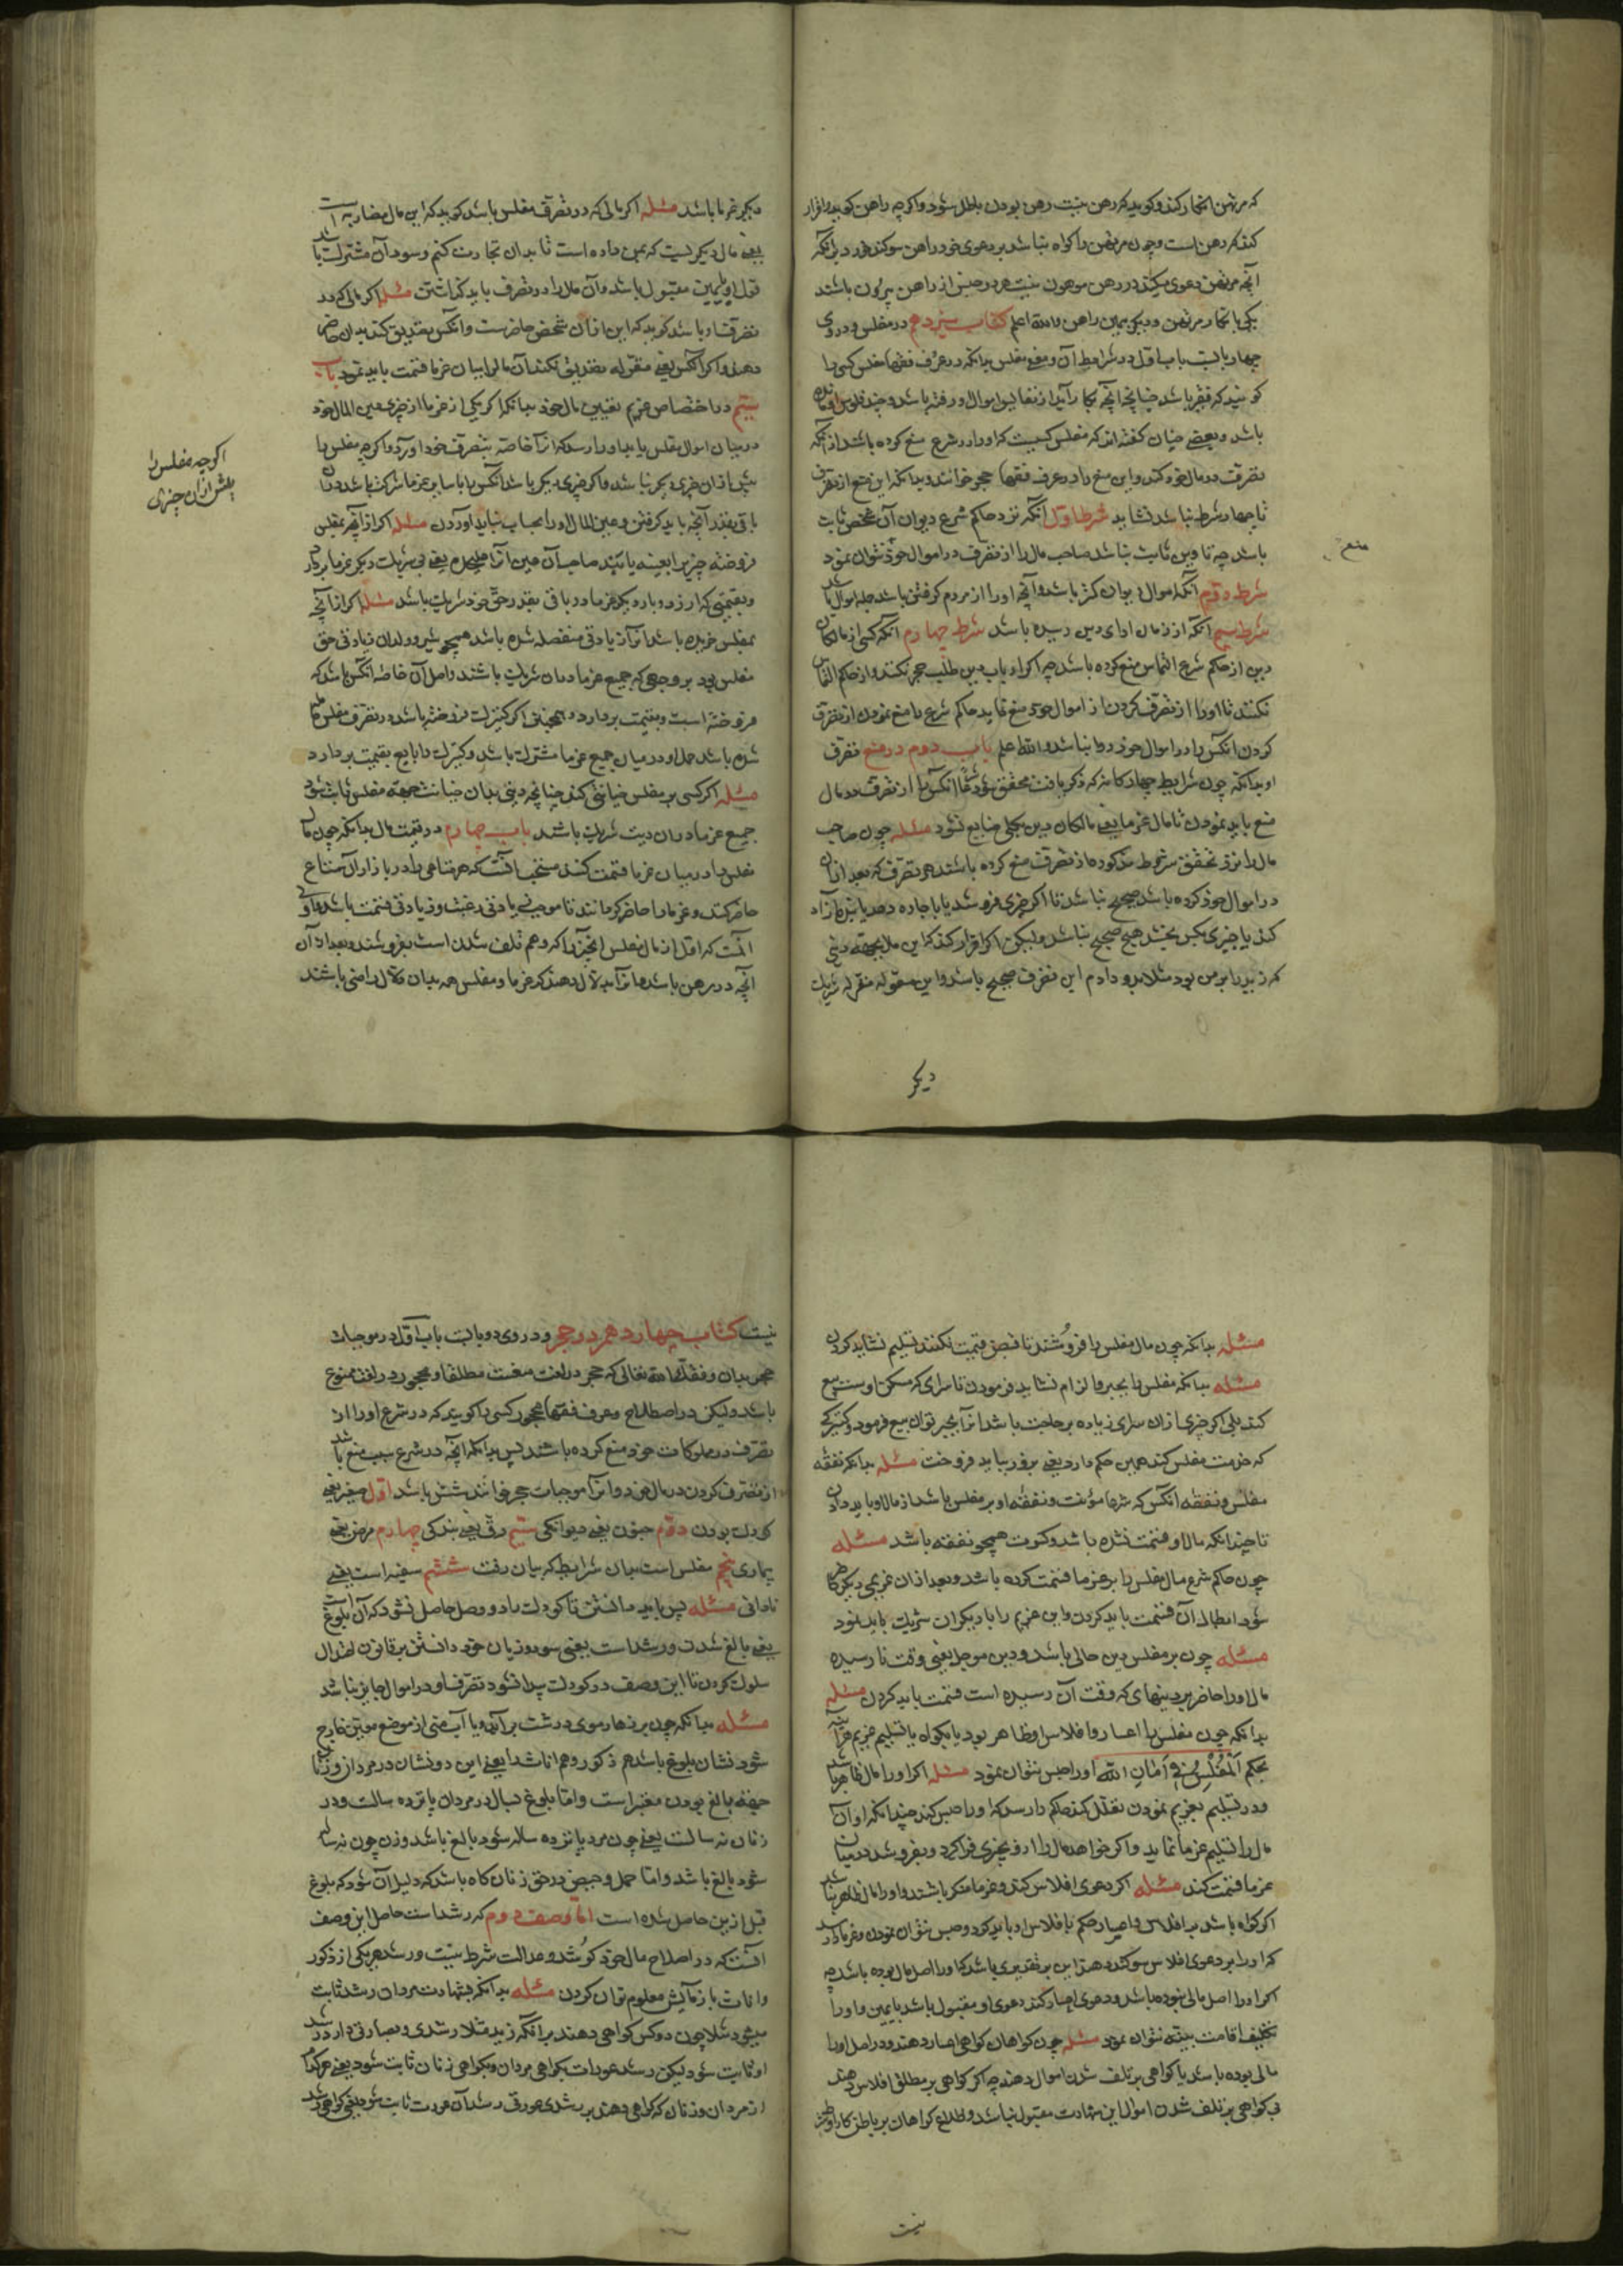 که مرتهن انکار کند و گوید که رهن نیست رهن بودن باطل شود و اگرچه راهن گوید و اقرار
کند که رهن است و چون مرتهن را گواه نباشد بر دعوی خود راهن سوکند خورد بر آنکه
آنچه مرتهن دعوی میکند در رهن مرهون نیست هر دو جنس از راهن بیرون باشند
یکی بانکار مرتهن و دیکری بیمین راهن والله اعلم کتاب سیزدهم در مفلس و در وی
چهار بابست باب اول در شرایط آن و معنی مفلس بدانکه در عرف فقها مفلس کسی را
کویند که فقیر باشد چنانچه آنچه بکار آید از نفایس اموال او رفته باشد و چند فلوس او مانده
باشد و بعضی چنان کفته اند که مفلس کسیست که او را در شرع منع کرده باشد از آنکه
تصرف در مال خود کند و این منع را در عرف فقها حجر خوانند و بدانکه این منع از تصرف
تا چهار شرط نباشد نشاید شرط اول آنکه نزد حاکم شرع دیون آن شخص ثابت
باشد چه تا دین ثابت نباشد صاحب مال را از تصرف در اموال خود نتوان نمود
منع
شرط دوم آنکه اموال دیون کمتر باشد و آنچه او را از مردم کرفتنی باشد جمله اموال باشد
شرط سیم آنکه از زمان ادای دین رسیده باشد شرط چهارم آنکه کسی از مالکان
دین از حاکم شرع التماس منع کرده باشد چه اگر ارباب دین طلب حجر نکنند و از حاکم التماس
نکنند تا او را از تصرف کردن از اموال خود منع نماید حاکم شرع را منع نمودن از تصرف
کردن آنکس را در اموال خود روا نباشد والله اعلم باب دوم در منع تصرف
او بدانکه چون شرایط چهارکانه که ذکر یافت محقق شود شرعا آنکس را از تصرف در مال
منع باید نمودن تا مال غرما یعنی مالکان دین بکلی ضایع نشود مسئله چون صاحب
مال را نزد تحقق شروط مذکوره از تصرف منع کرده باشند هر تصرف که بعد از آن
در اموال خود کرده باشد صحیح نباشد تا اگر چیزی فروشد یا باجاره دهد یا بنده آزاد
کند یا چیزی بکس بخشد هیچ صحیح نباشد ولیکن اگر اقرار کند که این مال بجهة دینی
که زید را بر من بود مثلا بدو دادم این تصرف صحیح باشد و این مقوله مقرله شریک
دیکر
دیکر غرما باشد مسئله اگر مالی که در تصرف مفلس باشد کوید که این مال مضاربه است
یعنی مال دیکریست که بمن داده است تا بدان تجارت کنم و سود آن مشترک باشد
قول او بیمین مقبول باشد و آن مال را در تصرف باید کذاشتن مسئله اگر مالی که در
تصرف او باشد کوید که این از آن شخص حاضرست و آنکس تصدیق کند بدان حاضر
دهند و اگر آنکس یعنی مقرله تصدیق نکند آن مال را میان غرما قسمت باید نمود باب
سیم در اختصاص غریم بعین مال خود بدانکه اگر یکی از غرما از چیزی عین المال خود
در میان اموال مفلس یابد او را رسد که از آنها خاصه بتصرف خود آورد و اگرچه مفلس را
بیش از آن چیزی دیکر نباشد و اگر چیزی دیکر باشد آنکس را با سایر غرما شرکت باشد در آن
اگرچه مفلس را
بیش از آن چیزی
باقی بقدر آنچه باید کرفتن و عین المال او را بحساب نباید آوردن مسئله اگر از آنچه بمفلس
فروخته چیزی را بعینه یابند صاحب آن عین آنرا یعنی بی شریک دیکر غرما بردارد
و بقسمتی که ارزد و بارد دیکر غرما در باقی بقدر حق خود شریک باشد مسئله اگر از آنچه
بمفلس خریده باشد از آن زیادتی منفصله شده باشد همچو شیر و ولد آن زیادتی حق
مفلس بود بر وجهی که جمیع غرما در آن شریک باشند و اصل آن خاصه آنکس باشد که
فروخته است و بقیمت بردارد و همچنین اگر کنیزک فروخته باشد و در تصرف مفلس حامله
شده باشد حمل او در میان جمیع غرما مشترک باشد و کنیزک را بایع بقیمت بردارد
مسئله اگر کسی بر مفلس جنایتی کند چنانچه دیتی بدان جنایت جهة مفلس ثابت شود
جمیع غرما در آن دیت شریک باشند باب چهارم در قسمت مال بدانکه چون مال
مفلس را در میان غرما قسمت کنند مستحب آنست که هر متاعی را در بازار آن متاع
حاضر کنند و غرما را حاضر کردانند تا موجب زیادتی رغبت و زیادتی قیمت باشد و اولی
آنست که اول از مال مفلس آنچیز را که وهم تلف شدن است بفروشند و بعد از آن
آنچه در رهن باشد و آنرا بدلال دهند که غرما و مفلس همه بدان دلال راضی باشند
مسئله بدانکه چون مال مفلس را فروشند تا قبض قیمت نکنند تسلیم نشاید کردن
مسئله بدانکه مفلس را بجبر و الزام نشاید فرمودن تا سرای که مسکن اوست بیع
کند بلی اگر چیزی از آن سرای زیاده بر حاجت باشد آنرا بجبر توان بیع فرمود و کنیزکی
که خدمت مفلس کند همین حکم دارد یعنی بزور نباید فروخت مسئله بدانکه نفقه
مفلس و نفقه آنکس که شرعا مؤنت و نفقه او بر مفلس باشد از مال او باید دادن
تا چندانکه مال او قسمت نشده باشد و کسوت همچو نفقه باشد مسئله
چون حاکم شرع مال مفلس را بر غرما قسمت کرده باشد و بعد از آن غریمی دیکر ظاهر
شود ابطال آن قسمت باید کردن و این غریم را با دیکران شریک باید نمود
مسئله چون بر مفلس دین حالی باشد و دین موجل یعنی وقت نارسیده
مال او را حاضر بر دینهای که وقت آن رسیده است قسمت باید کردن مسئله
بدانکه چون مفلس را اعسار و افلاس او ظاهر بود یا بکواه یا بتسلیم غریم هر آینه
بحکم اَلْمُفْلِسُ فِی أَمَانِ اللّه او را حبس نتوان نمود مسئله اگر او را مال ظاهر باشد
و در تسلیم بغریم نمودن تعلل کند حاکم را رسد که او را حبس کند چندانکه او آن
مال را تسلیم غرما نماید و اگر خواهد مال را از و بجبری فراکیرد و بفروشد و در میان
غرما قسمت کند مسئله اگر دعوی افلاس کند و غرما منکر باشند و او را مال ظاهر نباشد
اگر کواه باشد بر افلاس و اعسار حکم بافلاس او باید کرد و حبس نتوان نمودن و غرما را رسد
که او را بر دعوی افلاس سوکند دهند این بر تقدیری باشد که او را اصل مال بوده باشد چه
اگر او را اصل مالی نبوده باشد و دعوی اعسار کند دعوی او مقبول باشد با یمین و او را
تکلیف اقامت بینه نتوان نمود مسئله چون کواهان کواهی اعسار دهند و در اصل او را
مالی بوده باشد یا کواهی بر تلف شدن اموال دهند چه اگر کواهی بر مطلق افلاس دهند
بی کواهی بر تلف شدن اموال این شهادت مقبول نباشد و اطلاع کواهان بر باطن کار او شرط
نیست
نیست کتاب چهاردهم در حجر و در وی دو بابست باب اول در موجبات
حجر بدان وفقک الله تعالی که حجر در لغت منعست مطلقا و محجور در لغت ممنوع
باشد ولیکن در اصطلاح و عرف فقها محجور کسی را کویند که در شرع او را از
تصرف در مملوکات خود منع کرده باشند پس بدانکه آنچه در شرع سبب منع باشد
از تصرف کردن در مال خود و آنرا موجبات حجر خوانند شش باشد اول صغر یعنی
کودک بودن دوم جنون یعنی دیوانکی سیم رق یعنی بندکی چهارم مرض یعنی
بیماری پنجم مفلس است بدان شرایط که بیان رفت ششم سفیه است یعنی
نادانی مسئله پس باید دانستن تا کودک را دو وصل حاصل نشود که آن بلوغ است
یعنی بالغ شدن و رشد است یعنی سود و زیان خود دانستن بر قانون اعتدال
سلوک کردن تا این وصف در کودک پیدا نشود تصرف او در اموال جایز نباشد
مسئله بدانکه چون بر زهار موی درشت برآید و یا آب منی از موضع معین خارج
شود نشان بلوغ باشد هم ذکور و هم اناث را یعنی این دو نشان در مردان و زنان
جهة بالغ بودن معتبر است و اما بلوغ بسال در مردان پانزده سالست و در
زنان نه سالست یعنی چون مرد پانزده ساله شود بالغ باشد و زن چون نه ساله
شود بالغ باشد و اما حمل و حیض در حق زنان کاه باشد که دلیل آن شود که بلوغ
قبل ازین حاصل شده است اما وصف دوم که رشد است حاصل این وصف
آنست که در اصلاح مال خود کوشد و عدالت شرط نیست و رشد هر یکی از ذکور
و اناث بآزمایش معلوم توان کردن مسئله بدانکه بشهادت مردان رشد ثابت
میشود مثلا چون دو کس کواهی دهند بر آنکه زید مثلا رشدی و بصارتی دارد رشد
او ثابت شود لیکن رشد عورات بکواهی مردان و بکواهی زنان ثابت شود یعنی هر کدام
از مردان و زنان که کواهی دهند بر رشد عورتی رشد آن عورت ثابت شود یعنی کواهی رشد